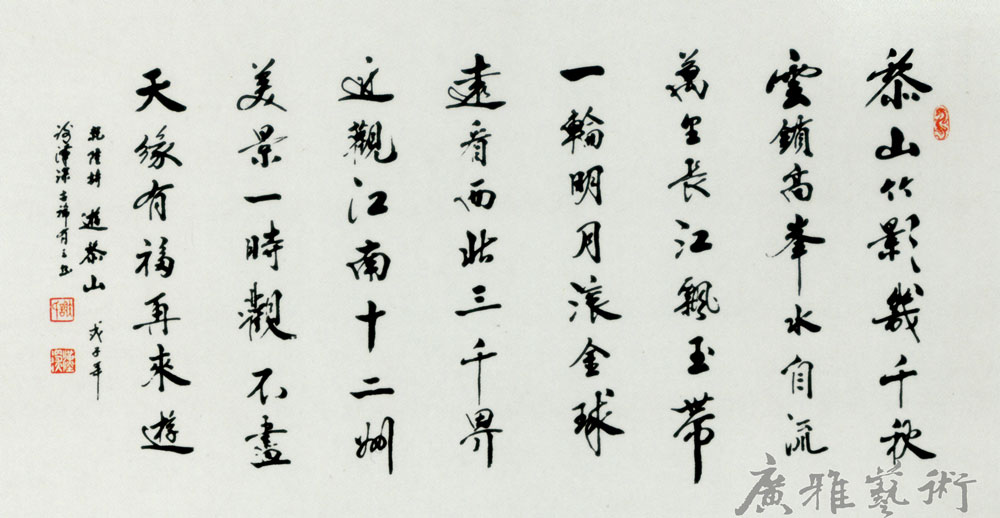 黎山竹影幾千秋
雲鎖高峯水自流
萬里長江飄玉帶
一輪明月滾金球
遠看西北三千界
近觀江南十二州
美景一時觀不盡
天緣有福再來遊
乾隆詩 遊黎山 戊子年
廣雅藝術